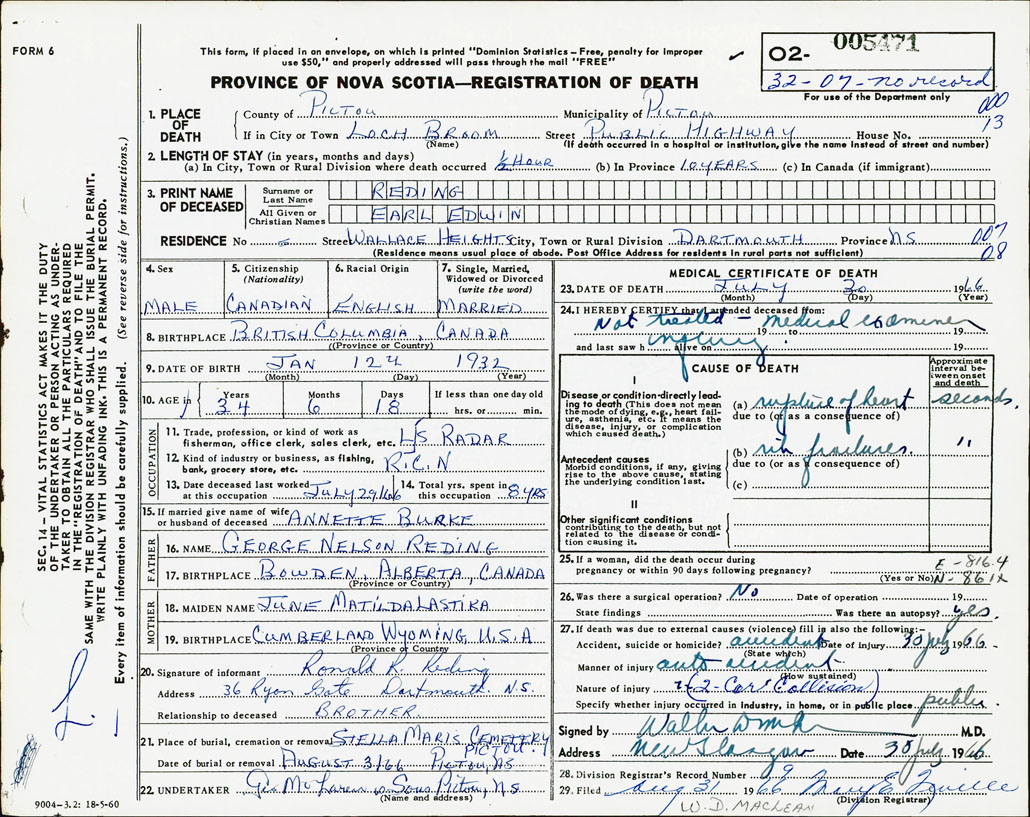 FORM 6
This form, if placed in an envelope, on which is printed "Dominion Statistics – Free, penalty for improper
use $50," and properly addressed will pass through the mail "FREE"
PROVINCE OF NOVA SCOTIA—REGISTRATION OF DEATH
O2- 005471
32-07-no record
For use of the Department only
000
13
1. PLACE OF DEATH
County of PICTOU Municipality of PICTOU
If in City or Town LOCH BROOM Street PUBLIC HIGHWAY House No.
(Name) (If death occurred in a hospital or institution, give the name instead of street and number)
2. LENGTH OF STAY (in years, months and days)
(a) In City, Town or Rural Division where death occurred ½ HOUR (b) In Province 10 YEARS (c) In Canada (if immigrant)
3. PRINT NAME OF DECEASED
Surname or Last Name REDING
All Given or Christian Names EARL EDWIN
RESIDENCE No - Street WALLACE HEIGHTS City, Town or Rural Division DARTMOUTH Province NS
007
08
(Residence means usual place of abode. Post Office Address for residents in rural parts not sufficient)
4. Sex
MALE
5. Citizenship (Nationality)
CANADIAN
6. Racial Origin
ENGLISH
7. Single, Married, Widowed or Divorced (write the word)
MARRIED
8. BIRTHPLACE BRITISH COLUMBIA, CANADA
(Province or Country)
9. DATE OF BIRTH JAN 124 1932
(Month) (Day) (Year)
10. AGE in Years 34 Months 6 Days 18 If less than one day old
hrs. or min.
OCCUPATION
11. Trade, profession, or kind of work as
fisherman, office clerk, sales clerk, etc. L/S RADAR
12. Kind of industry or business, as fishing,
bank, grocery store, etc. R.C.N
13. Date deceased last worked at this occupation JULY 29/66
14. Total yrs. spent in this occupation 8 YRS
15. If married give name of wife
or husband of deceased ANNETTE BURKE
FATHER
16. NAME GEORGE NELSON REDING
17. BIRTHPLACE BOWDEN, ALBERTA, CANADA
(Province or Country)
MOTHER
18. MAIDEN NAME JUNE MATILDA LASTIKA
19. BIRTHPLACE CUMBERLAND WYOMING U.S.A
(Province or Country)
20. Signature of informant Ronald R. Reding
Address 36 Ryon Gate Dartmouth N.S.
Relationship to deceased BROTHER
21. Place of burial, cremation or removal STELLA MARIS CEMETERY
PICTOU
Date of burial or removal AUGUST 3/66 PICTOU, NS
22. UNDERTAKER Geo McLaren & Sons Pictou, N.S
(Name and address)
MEDICAL CERTIFICATE OF DEATH
23. DATE OF DEATH JULY 30 1966
(Month) (Day) (Year)
24. I HEREBY CERTIFY that I attended deceased from:
Not treated – medical examiner
19 to 19
and last saw h alive on 19
inquiry
CAUSE OF DEATH
Approximate interval between onset and death
I
Disease or condition directly leading to death (This does not mean the mode of dying, e.g., heart failure, asthenia, etc. It means the disease, injury, or complication which caused death.)
(a) rupture of heart seconds.
due to (or as a consequence of)
Antecedent causes
Morbid conditions, if any, giving rise to the above cause, stating the underlying condition last.
(b) rib fractures. "
due to (or as a consequence of)
(c)
II
Other significant conditions
contributing to the death, but not related to the disease or condition causing it.
25. If a woman, did the death occur during
pregnancy or within 90 days following pregnancy?
(Yes or No)
E-816.4
N-861X
26. Was there a surgical operation? No Date of operation 19
State findings Was there an autopsy? yes
27. If death was due to external causes (violence) fill in also the following:–
Accident, suicide or homicide? accident Date of injury 30 July 1966
(State which)
Manner of injury auto accident
(How sustained)
Nature of injury (2-Car Collision)
Specify whether injury occurred in industry, in home, or in public place. public
Signed by M.D.
Address New Glasgow Date 30 July 1966
28. Division Registrar's Record Number 9
29. Filed Aug 31 1966
(Division Registrar)
W. D. MACLEAN
SEC. 14 – VITAL STATISTICS ACT MAKES IT THE DUTY
OF THE UNDERTAKER OR PERSON ACTING AS UNDER-
TAKER TO OBTAIN ALL THE PARTICULARS REQUIRED
IN THE "REGISTRATION OF DEATH" AND TO FILE THE
SAME WITH THE DIVISION REGISTRAR WHO SHALL ISSUE THE BURIAL PERMIT.
WRITE PLAINLY WITH UNFADING INK. THIS IS A PERMANENT RECORD.
Every item of information should be carefully supplied. (See reverse side for instructions.)
9004-3.2: 18-5-60